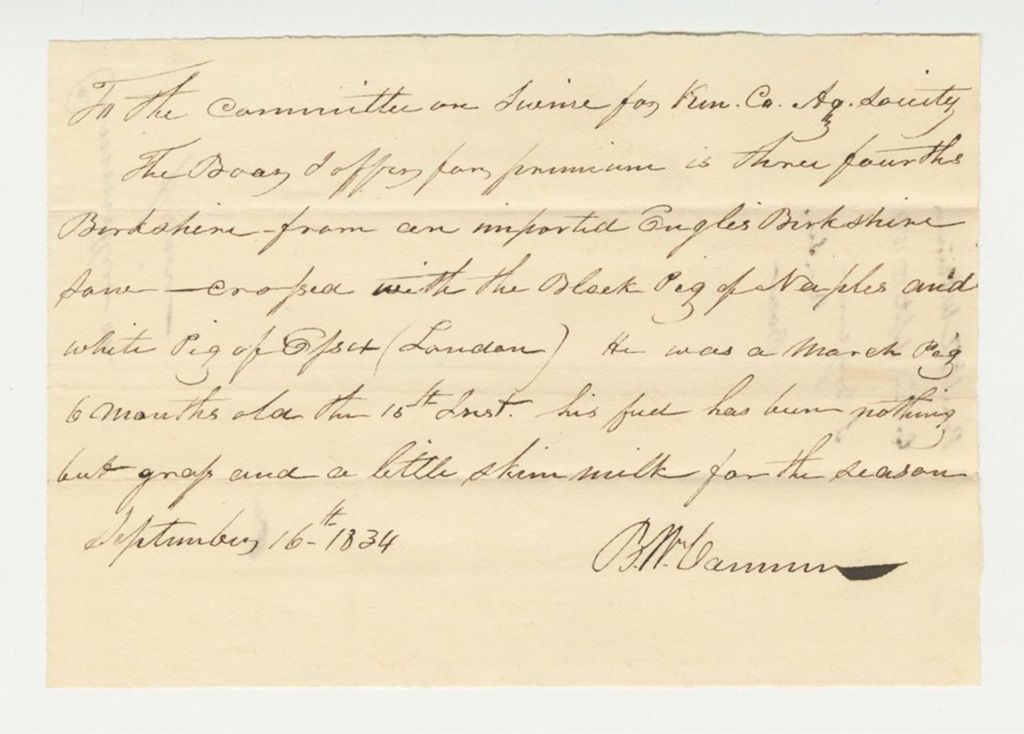 To the Committee on Swine for Ken. Co. Ag. Society
The Boar I offer for premium is three fourths
Birkshire - from an imported Englis Birkshire
sow — crossed with the Black Pig of Naples and
white Pig of Essex (London) He was a March Pig
6 months old the 15th Inst. his feed has been nothing
but grass and a little skim milk for the season
September 16th 1834
B. W.